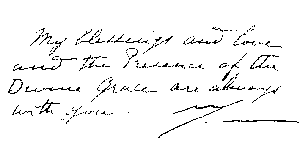 My blessings and love
and the Presence of the
Divine Grace are always
with you.